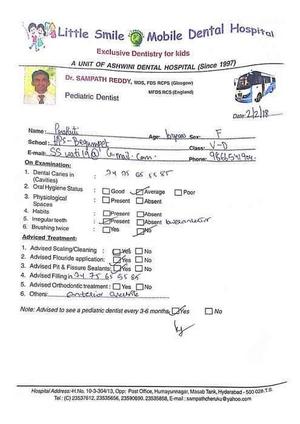 Little Smile Mobile Dental Hospital
Exclusive Dentistry for kids
A UNIT OF ASHWINI DENTAL HOSPITAL (Since 1997)
Dr. SAMPATH REDDY, MDS, FDS RCPS (Glasgow)
MFDS RCS (England)
Pediatric Dentist
Date: 2/2/18
Name: Age: Sex: F
School: Begumpet Class: V-D
E-mail: Phone:
On Examination:
1. Dental Caries in (Cavities) 74 75 65 55 85
2. Oral Hygiene Status Good Average Poor
3. Physiological Spaces Present Absent
4. Habits Present Absent
5. Irregular teeth Present Absent
6. Brushing twice Yes No
Adviced Treatment:
1. Advised Scaling/Cleaning : Yes No
2. Advised Flouride application: Yes No
3. Advised Pit & Fissure Sealants: Yes No
4. Advised Filling in 74 75 65 55 85
5. Advised Orthodontic treatment : Yes No
6. Others:
Note: Advised to see a pediatric dentist every 3-6 months Yes No
Hospital Address: H.No. 10-3-304/13, Opp: Post Office, Humayunnagar, Masab Tank, Hyderabad - 500 028.T.S.
Tel.: (C) 23537612, 23535656, 23590690, 23535858, E-mail : sampathcheruku@yahoo.com